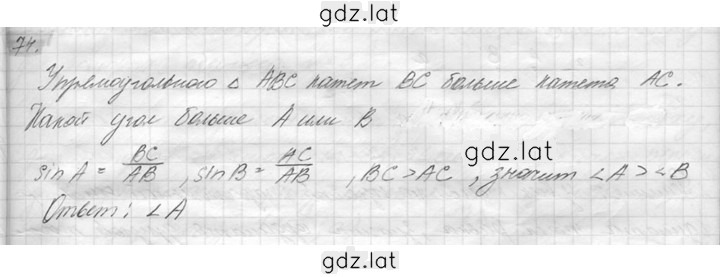 gdz.lat
74.
У прямоугольного Δ ABC катет BC больше катета AC.
Какой угол больше A или B
sin A = BC/AB , sin B = AC/AB , BC > AC , значит ∠A > ∠B
gdz.lat
Ответ: ∠A
gdz.lat